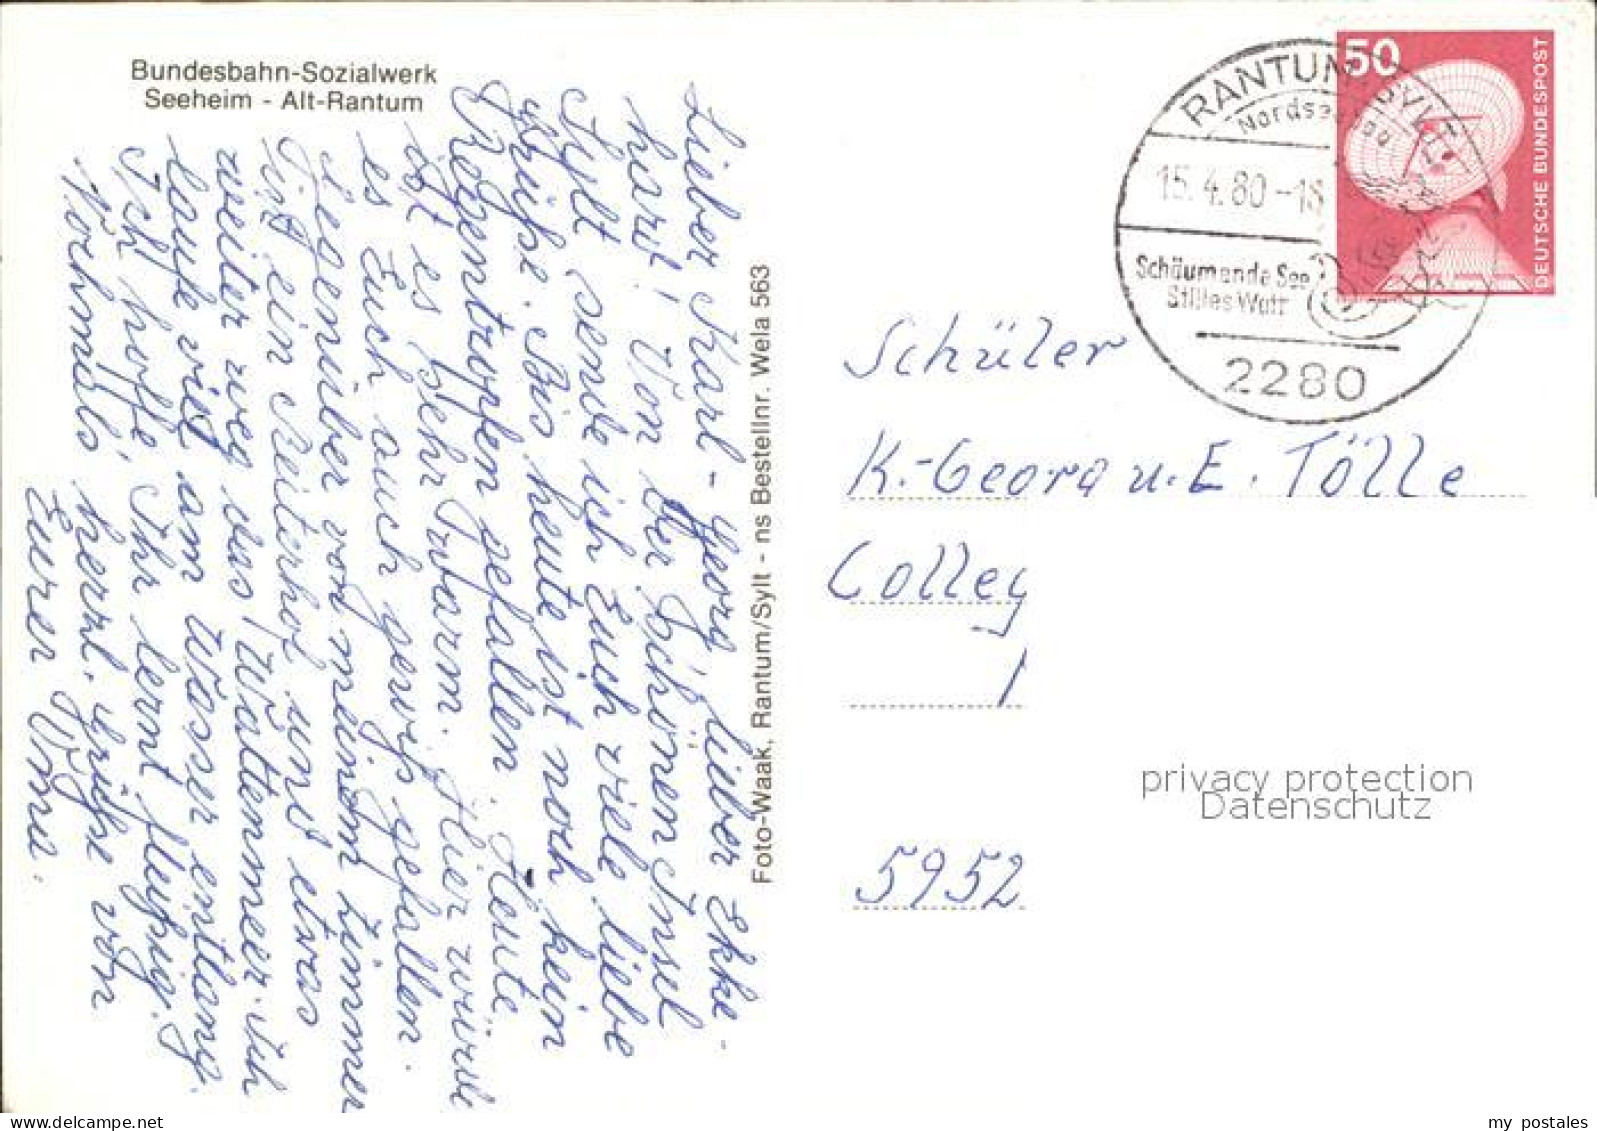 Bundesbahn-Sozialwerk
Seeheim - Alt-Rantum
Lieber Karl-Georg, lieber Ekke-
hart! Von der schönen Insel
Sylt sende ich Euch viele liebe
Grüße. Bis heute ist noch kein
Regentropfen gefallen. Heute
ist es sehr warm. Hier würde
es Euch auch gewiß gefallen.
Gegenüber von meinem Zimmer
ist ein Reiterhof und etwas
weiter weg das Wattenmeer. Ich
laufe viel am Wasser entlang.
Ich hoffe, Ihr lernt fleißig.
Nochmals herzl. Grüße von
Eurer Oma.
Foto-Waak, Rantum/Sylt - ns Bestellnr. Wela 563
50
DEUTSCHE BUNDESPOST
RANTUM, SYLT
Nordseebad
15.4.80-18
Schäumende See
Stilles Watt
2280
Schüler
K.-Georg u. E. Tölle
Colleg
privacy protection
Datenschutz
5952
my postales